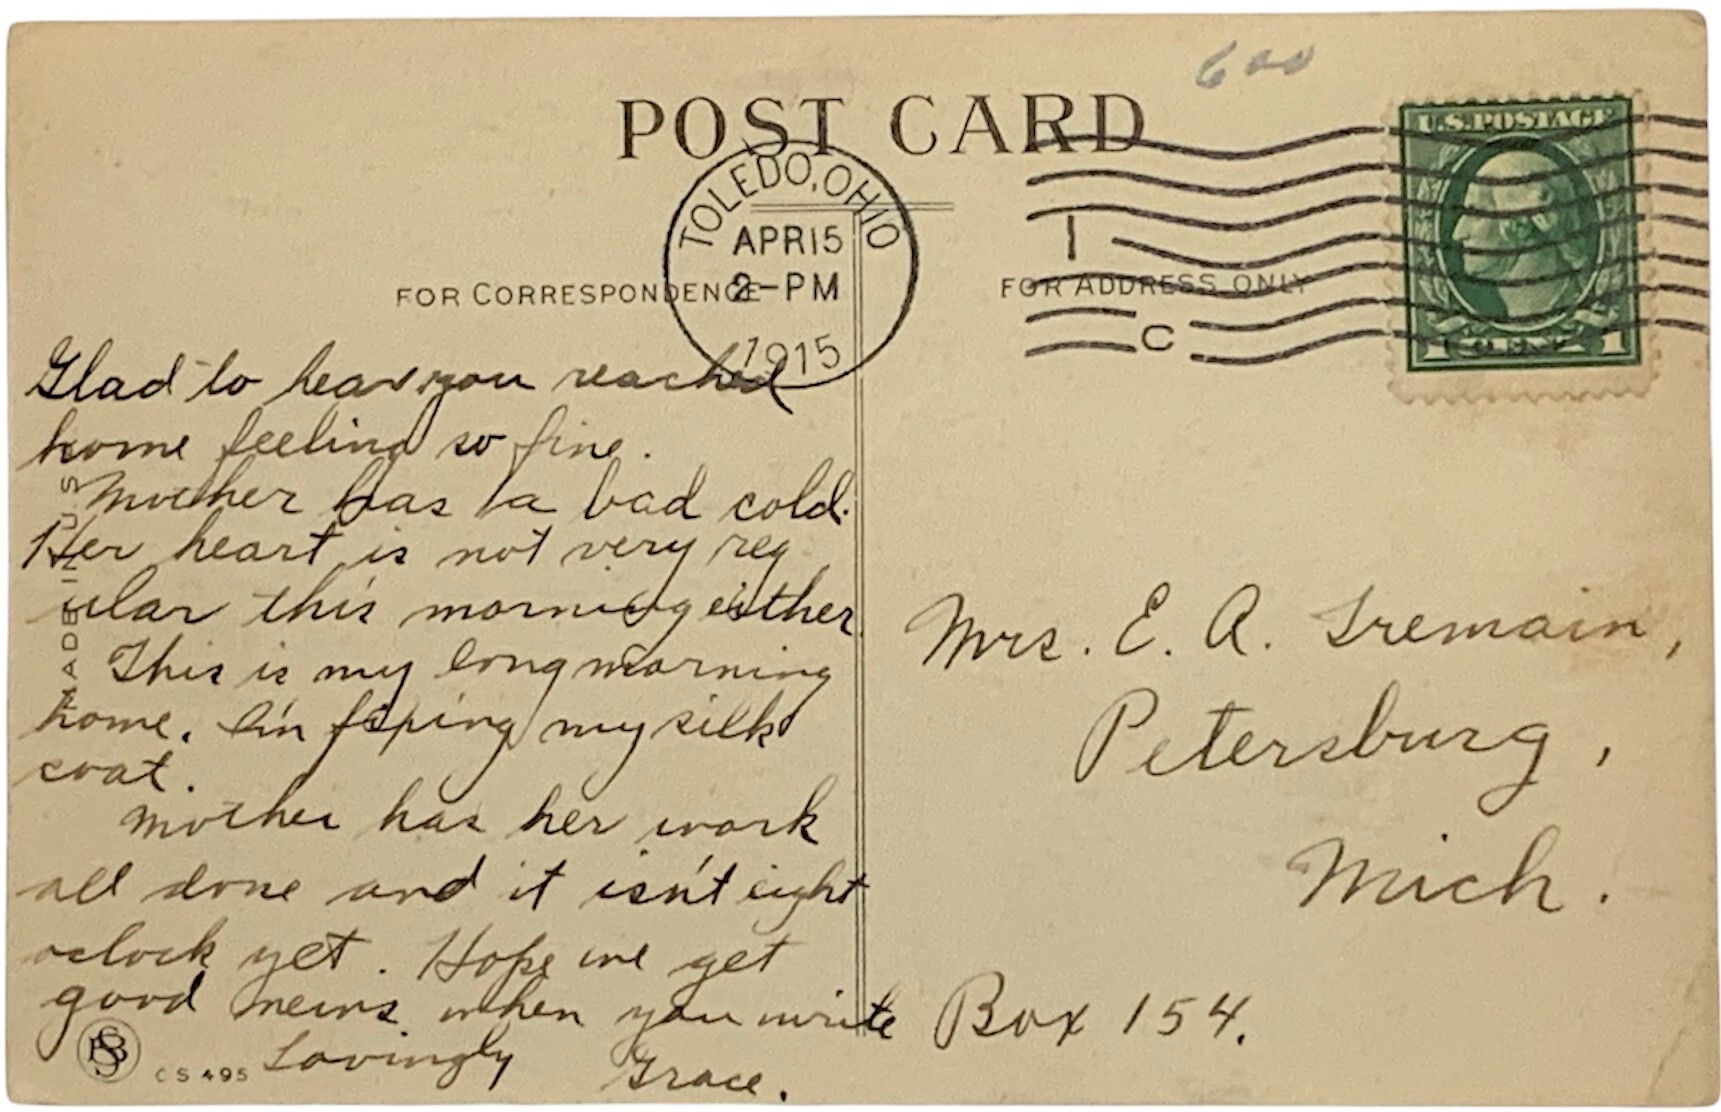 600
POST CARD
TOLEDO, OHIO
APR 15
2-PM
1915
1
C
U.S. POSTAGE
1 CENT 1
FOR CORRESPONDENCE
FOR ADDRESS ONLY
Glad to hear you reached
home feeling so fine.
Mother has a bad cold.
Her heart is not very reg
ular this morning either.
This is my long morning
home. I'm fixing my silk
coat.
Mother has her work
all done and it isn't eight
oclock yet. Hope we get
good news when you write
Lovingly Grace.
MADE IN U.S
PSB
CS 495
Mrs. E. A. Tremain,
Petersburg,
Mich.
Box 154.